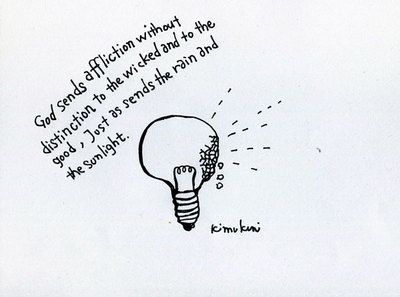 God sends affliction without
distinction to the wicked and to the
good, Just as sends the rain and
the sunlight.
kimukuni